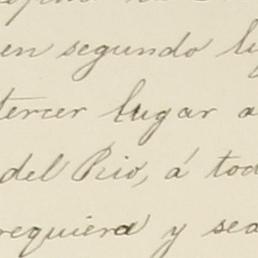 en segundo lu
tercer lugar a
del Rio, á tod
requiera y sea